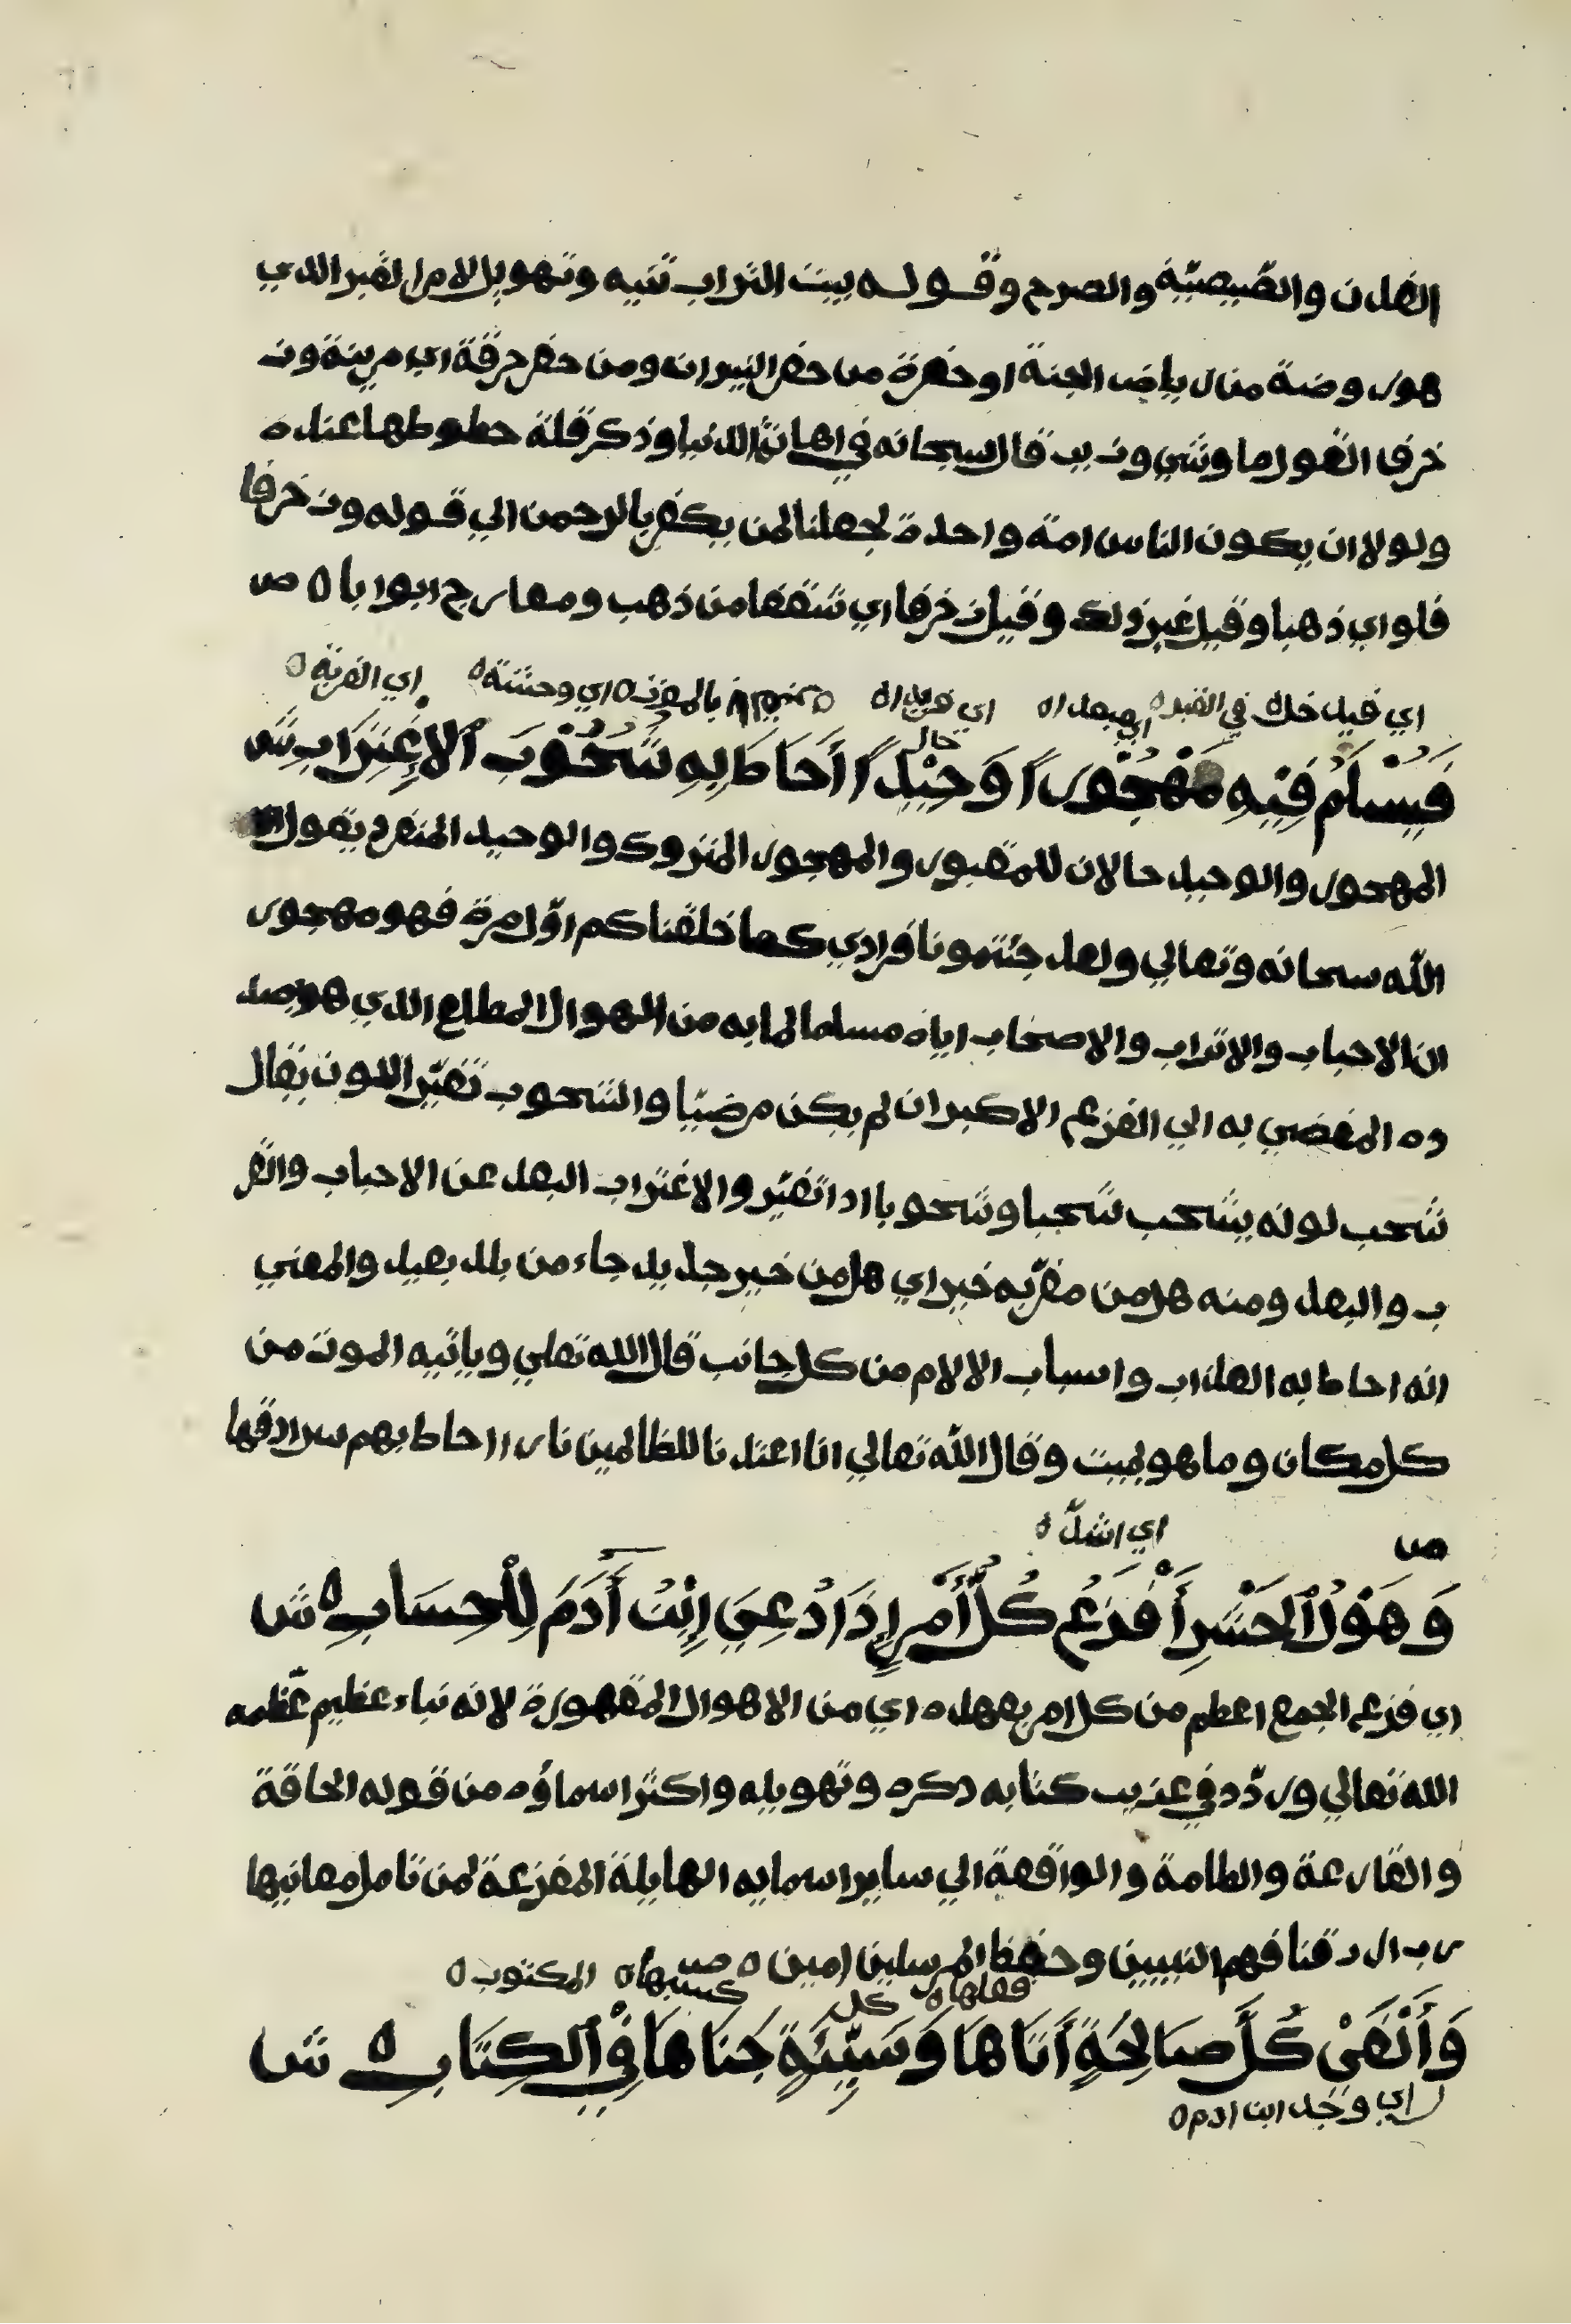 الفدن والقصيصية والصرح وقوله بيت التراب تنبيه وتهويل لامر القبر الذي
هو روضة من رياض الجنة او حفرة من حفر النيران ومن حفر حرقة اي مزينة وز
خرف القول ما وشي وزين قال سبحانه في اهانة الدنيا وذكر قلة حظوظها عنده
ولولا ان يكون الناس امة واحدة لجعلنا لمن يكفر بالرحمن الي قوله وزخرفا
فلواي ذهبا وقيل غير ذلك وقيل زخرفا اي سقفا من ذهب ومعارج ابوابا ه ص
اي قبل ذلك في القبر ه اي مبعدا ه اي فريدا ه بالموت ه اي وحشته ه اي الغربة ه
حال
فَيُسْلَمُ فِيْهِ مَهْجُوْراً وَحِيْداً أَحَاطَ بِهِ شُحُوْبَ الْإِغْتِرَابِ ش
المهجور والوحيد حالان للمقبور والمهجور المتروك والوحيد المنفرد يقول
الله سبحانه وتعالي ولقد جئتمونا فرادي كما خلقناكم اوّل مرة فهو مهجور
الاحباب والاتراب والاصحاب اياه مسلما لما به من الهوال المطلع الذي هو بصد
ده المفضي به الي الفزع الاكبر ان لم يكن مرضيّا والشحوب تغيّر اللون يقال
شحب لونه يشحب شحبا وشحوبا اذا تغيّر والاغتراب البعد عن الاحباب والقر
ب والبعد ومنه هل من مغرّبه خبر اي هل من خبر جديد جاء من بلد بعيد والمعني
انه احاط به العذاب واسباب الالام من كل جانب قال الله تعلي وياتيه الموت من
كل مكان وما هو بميت وقال الله تعالي انا اعتدنا للظالمين نارا احاط بهم سرادقها
ص اي اشدّ ه
وَهَوْلُ الْحَشْرِ أَفْزَعُ كُلِّ أَمْرٍ إِذَا دُعِيَ إِبْنُ آدَمَ لِلْحِسَابِ ه ش
اي فزع الجمع اعظم من كل امر يعهده اي من الاهوال المقهورة لانه نباء عظيم عظّمه
الله تعالي وردّد في عزيز كتابه ذكره وتهويله واكثر اسماؤه من قوله الحاقة
والقارعة والطامة والواقعة الي ساير اسمايه الهايلة المفزعة لمن تامل معانيها
رب ارزقنا فهم النبيين وحفظ المرسلين امين ه ص
فعلها ه كل كسبها ه المكتوب ه
وَأَلْفَىْ كُلَّ صَالِحَةٍ أَتَاهَا وَسَيِّئَةٍ جَنَاهَا فِيْ الْكِتَابِ ه ش
اي وجد ابن ادم ه